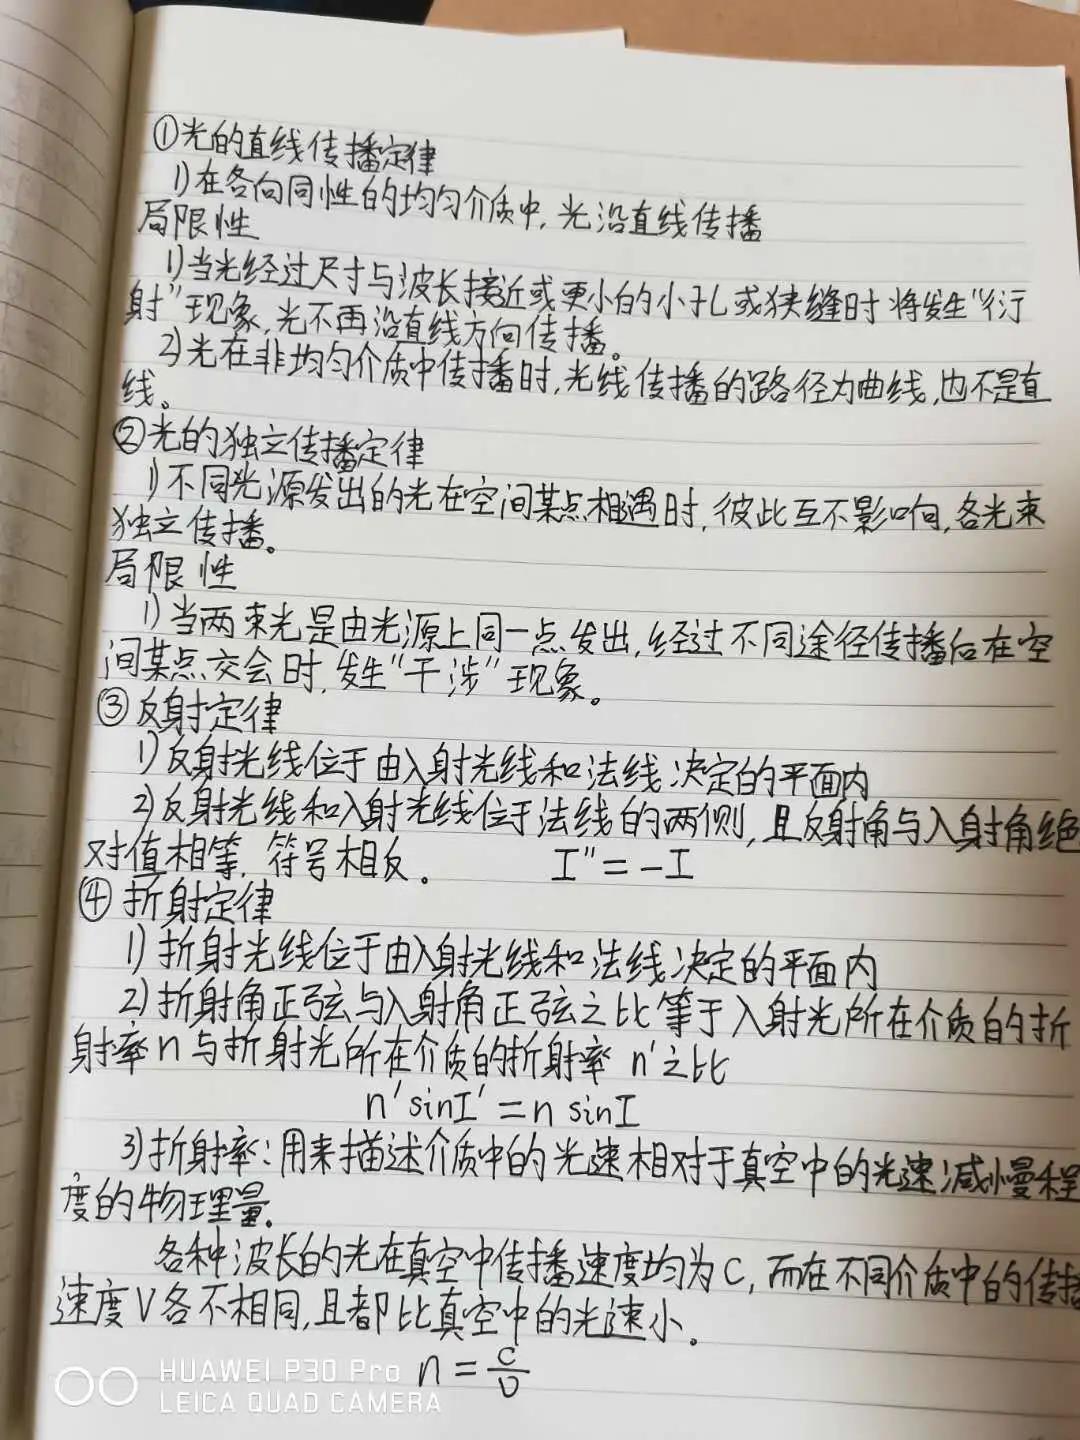 ①光的直线传播定律
1)在各向同性的均匀介质中,光沿直线传播
局限性
1)当光经过尺寸与波长接近或更小的小孔或狭缝时将发生"衍
射"现象,光不再沿直线方向传播。
2)光在非均匀介质中传播时,光线传播的路径为曲线,也不是直
线。
②光的独立传播定律
1)不同光源发出的光在空间某点相遇时,彼此互不影响,各光束
独立传播。
局限性
1)当两束光是由光源上同一点发出,经过不同途径传播后在空
间某点交会时,发生"干涉"现象。
③反射定律
1)反射光线位于由入射光线和法线决定的平面内
2)反射光线和入射光线位于法线的两侧,且反射角与入射角绝
对值相等,符号相反。 I"=-I
④折射定律
1)折射光线位于由入射光线和法线决定的平面内
2)折射角正弦与入射角正弦之比等于入射光所在介质的折
射率n与折射光所在介质的折射率 n'之比
n'sinI'=n sinI
3)折射率:用来描述介质中的光速相对于真空中的光速减慢程
度的物理量.
各种波长的光在真空中传播速度均为C,而在不同介质中的传播
速度V各不相同,且都比真空中的光速小。
n=c/υ
HUAWEI P30 Pro
LEICA QUAD CAMERA